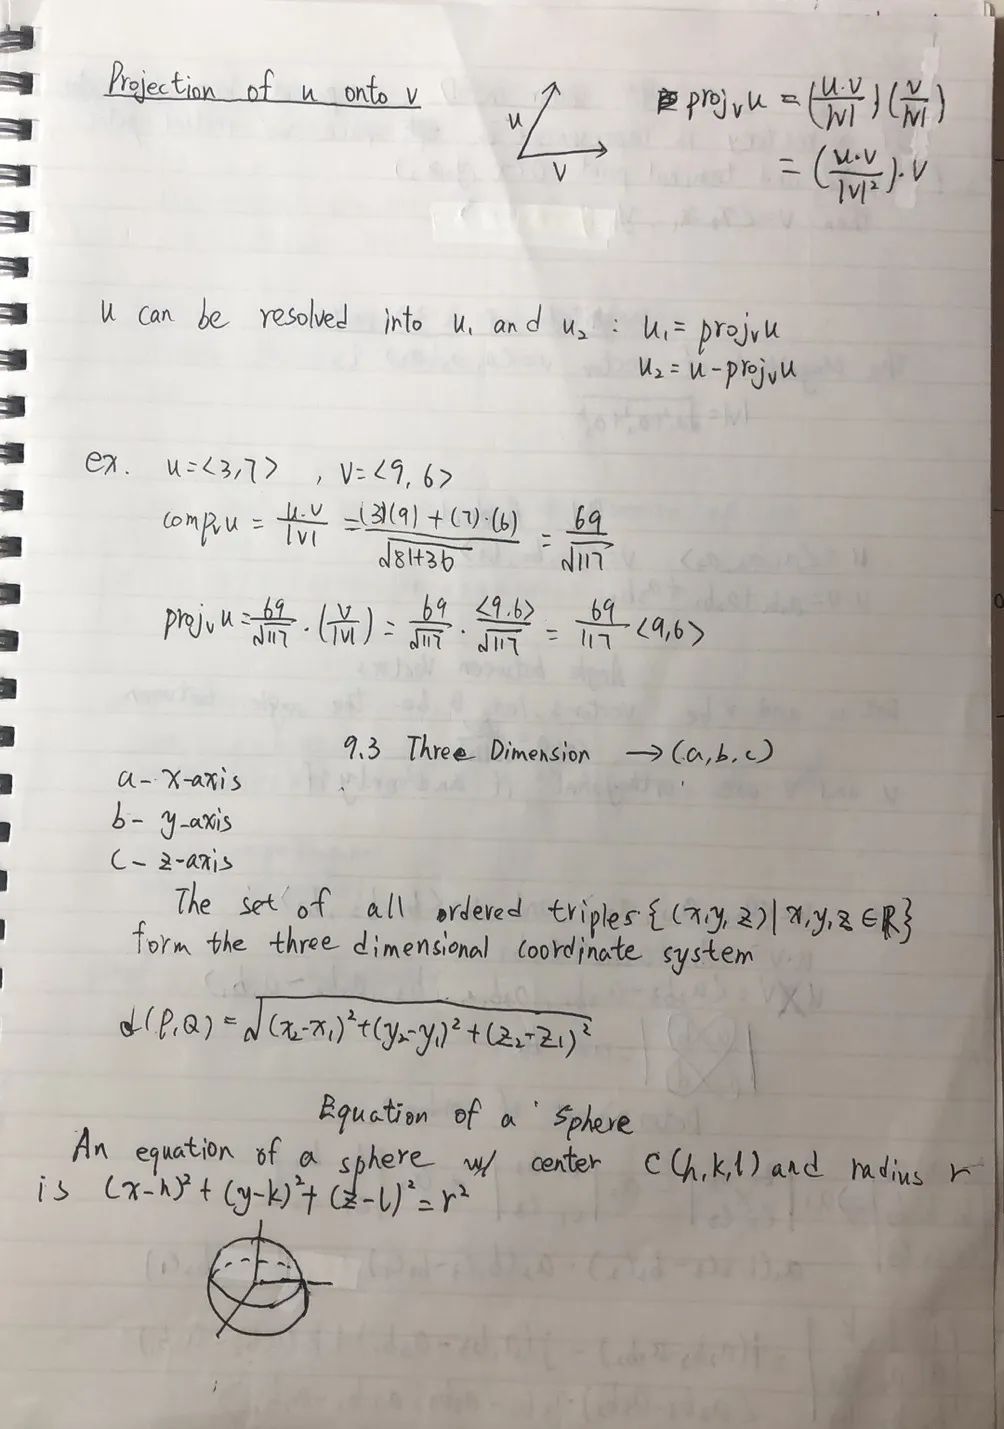 Projection of u onto v
u
v
proj_v u = (u·v/|v|)(v/|v|)
= (u·v/|v|²)·v
u can be resolved into u₁ and u₂ : u₁ = proj_v u
u₂ = u - proj_v u
ex. u=<3,7> , v=<9,6>
comp_v u = u·v/|v| = (3)(9) + (7)·(6)/√81+36 = 69/√117
proj_v u = 69/√117 · (v/|v|) = 69/√117 · <9,6>/√117 = 69/117 <9,6>
9.3 Three Dimension → (a,b,c)
a - x-axis
b - y-axis
c - z-axis
The set of all ordered triples {(x,y,z)|x,y,z ∈ ℝ}
form the three dimensional coordinate system
d(P,Q) = √(x₂-x₁)²+(y₂-y₁)²+(z₂-z₁)²
Equation of a sphere
An equation of a sphere w/ center C(h,k,l) and radius r
is (x-h)² + (y-k)² + (z-l)² = r²